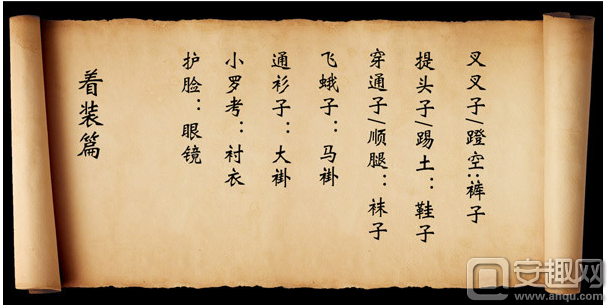 叉叉子/蹬空:裤子
提头子/踢土：鞋子
穿通子/顺腿：袜子
飞蛾子：马褂
通衫子：大褂
小罗考：衬衣
护脸：眼镜
着装篇
安趣网
www.anqu.com